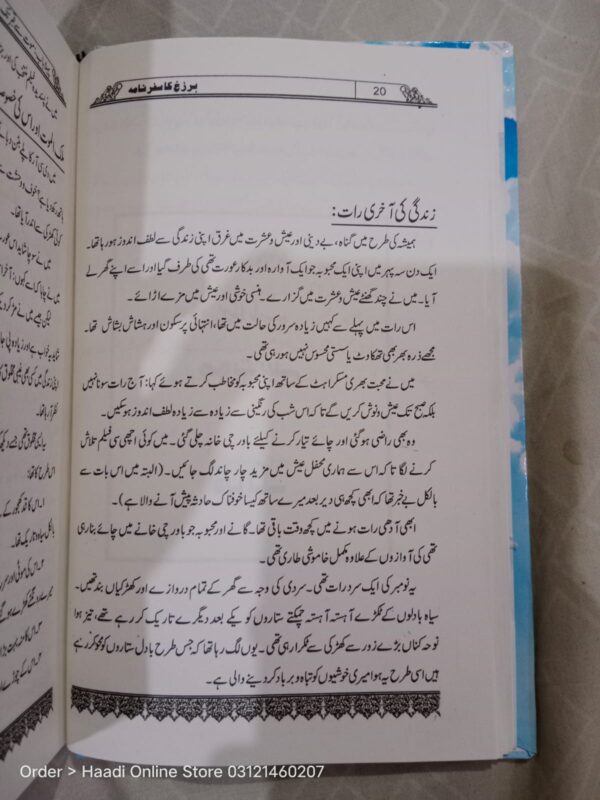 20
برزخ کا سفر نامہ
زندگی کی آخری رات:
ہمیشہ کی طرح میں گناہ، بے دینی اور عیش و عشرت میں غرق اپنی زندگی سے لطف اندوز ہو رہا تھا۔
ایک دن سہ پہر میں اپنی ایک محبوبہ جو ایک آوارہ اور بدکار عورت تھی کی طرف گیا اور اسے اپنے گھر لے
آیا۔ میں نے چند گھنٹے عیش و عشرت میں گزارے۔ ہنسی خوشی اور عیش میں مزے اڑائے۔
اس رات میں پہلے سے کہیں زیادہ سرور کی حالت میں تھا، انتہائی پر سکون اور ہشاش بشاش تھا۔
مجھے ذرہ بھر بھی تھکاوٹ یا سستی محسوس نہیں ہو رہی تھی۔
میں نے محبت بھری مسکراہٹ کے ساتھ اپنی محبوبہ کو مخاطب کرتے ہوئے کہا: آج رات سونا نہیں
بلکہ صبح تک عیش و نوش کریں گے تاکہ اس شب کی رنگینی سے زیادہ سے زیادہ لطف اندوز ہو سکیں۔
وہ بھی راضی ہو گئی اور چائے تیار کرنے کیلئے باورچی خانہ چلی گئی۔ میں کوئی اچھی سی فیلم تلاش
کرنے لگا تاکہ اس سے ہماری محفل عیش میں مزید چار چاند لگ جائیں۔ (البتہ میں اس بات سے
بالکل بے خبر تھا کہ ابھی کچھ ہی دیر بعد میرے ساتھ کیسا خوفناک حادثہ پیش آنے والا ہے)۔
ابھی آدھی رات ہونے میں کچھ وقت باقی تھا۔ گانے اور محبوبہ جو باورچی خانے میں چائے بنا رہی
تھی کی آوازوں کے علاوہ مکمل خاموشی طاری تھی۔
یہ نومبر کی ایک سرد رات تھی۔ سردی کی وجہ سے گھر کے تمام دروازے اور کھڑکیاں بند تھیں۔
سیاہ بادلوں کے ٹکڑے آہستہ آہستہ چمکتے ستاروں کو یکے بعد دیگرے تاریک کر رہے تھے، تیز ہوا
نوحہ کناں بڑے زور سے کھڑکی سے ٹکرا رہی تھی۔ یوں لگ رہا تھا کہ جس طرح بادل ستاروں کو محو کر رہے
ہیں اسی طرح یہ ہوا میری خوشیوں کو تباہ و برباد کر دینے والی ہے۔
Order > Haadi Online Store 03121460207